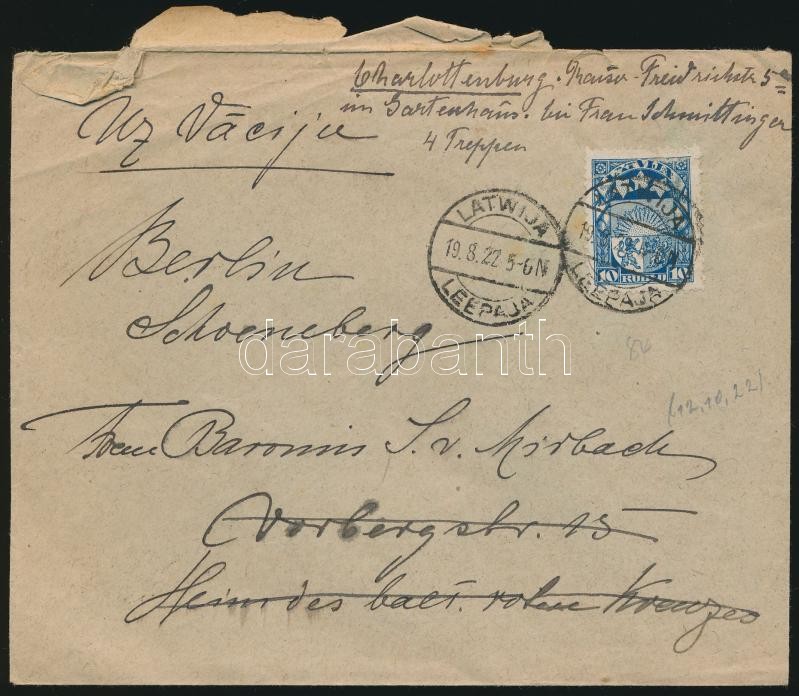 Charlottenburg. Kaiser-Freidrichstr 5
im Gartenhaus. bei Frau Schmittinger
4 Treppen
Uz Vāciju
LATVIJA
10 RUBĻU 10
LATWIJA
19.8.22 5-6N
LEEPAJA
LATWIJA
19.
LEEPAJA
Berlin
Schoeneberg
darabanth
84
(12,10,22).
Frau Baronin S. v. Mirbach
Vorbergstr. 15
Heim des balt. roten Kreuzes